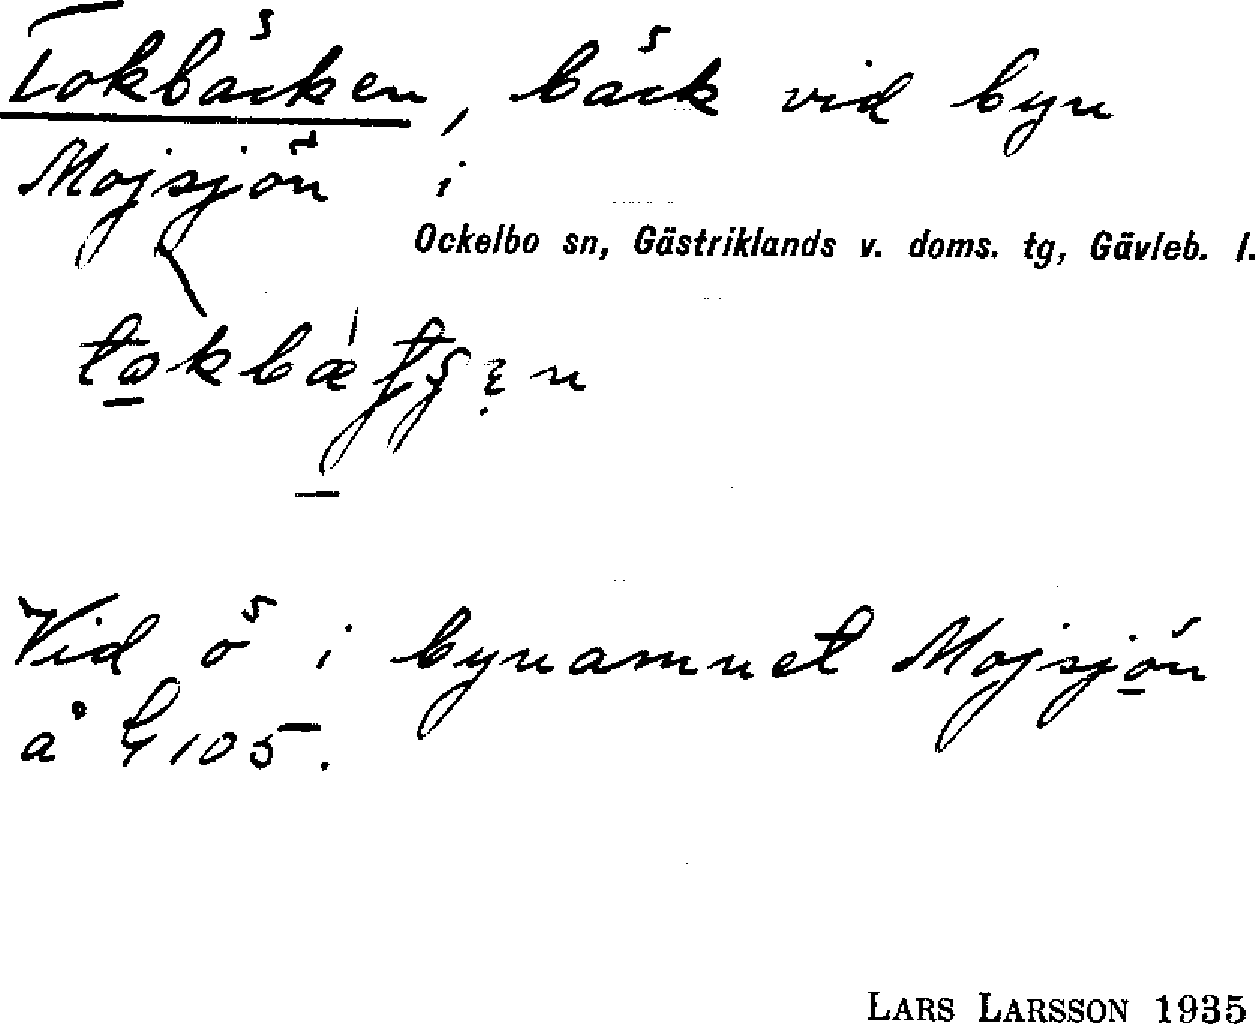 Tokbäcken, bäck vid byn
Mojsjön i
Ockelbo sn, Gästriklands v. doms. tg, Gävleb. l.
Vid ö i bynamnet Mojsjön
å G 105.
LARS LARSSON 1935